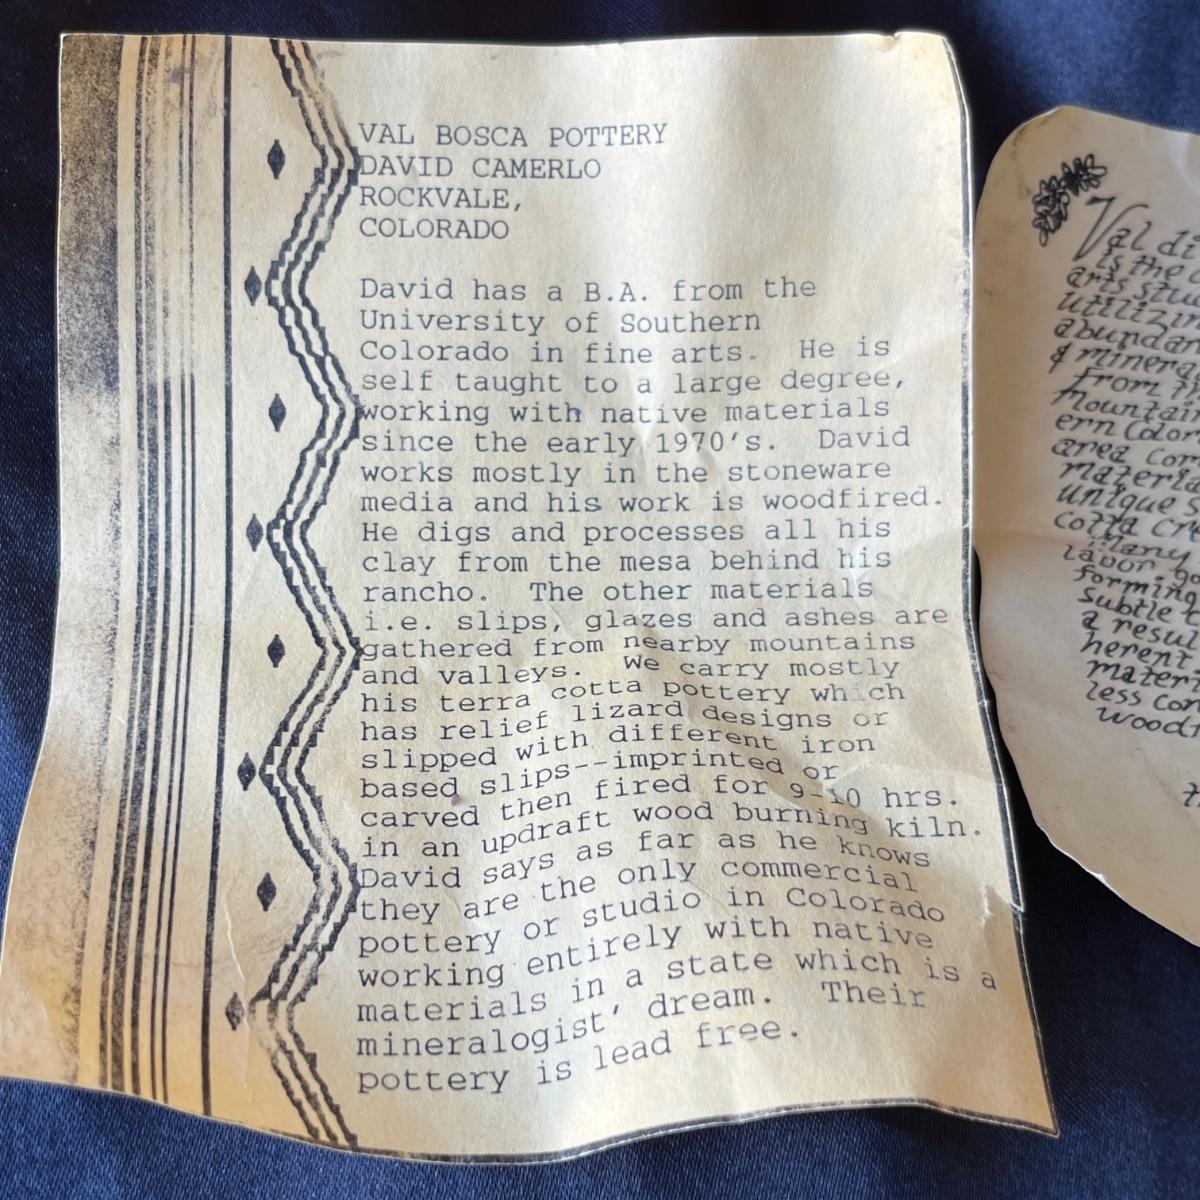 VAL BOSCA POTTERY
DAVID CAMERLO
ROCKVALE,
COLORADO
David has a B.A. from the
University of Southern
Colorado in fine arts. He is
self taught to a large degree,
working with native materials
since the early 1970's. David
works mostly in the stoneware
media and his work is woodfired.
He digs and processes all his
clay from the mesa behind his
rancho. The other materials
i.e. slips, glazes and ashes are
gathered from nearby mountains
and valleys. We carry mostly
his terra cotta pottery which
has relief lizard designs or
slipped with different iron
based slips--imprinted or
carved then fired for 9-10 hrs.
in an updraft wood burning kiln.
David says as far as he knows
they are the only commercial
pottery or studio in Colorado
working entirely with native
materials in a state which is a
mineralogist' dream. Their
pottery is lead free.
Val di
is the
arts stu
utilizin
abundan
& minera
From th
Mountain
ern Color
area com
materia
unique s
cotta cre
Many
labor go
forming
subtle t
a result
herent
materi
less con
woodf